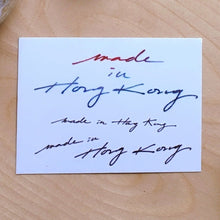 made
in
Hong Kong
made in Hong Kong
made in
Hong Kong